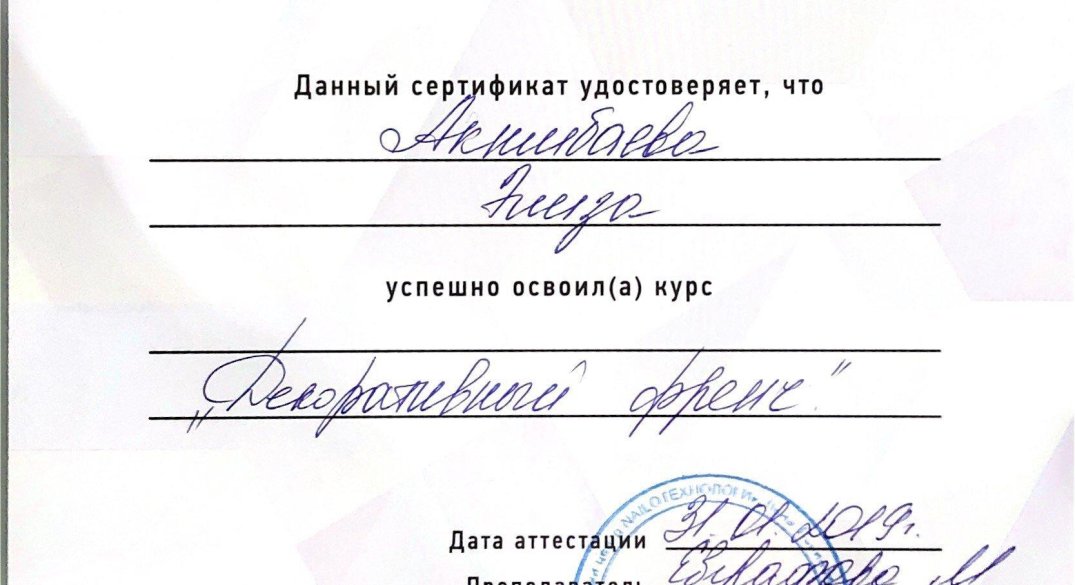 Данный сертификат удостоверяет, что
Акшибаева
Элиза
успешно освоил(а) курс
„Декоративный френч"
Дата аттестации 31.01.2019г.
Преподаватель